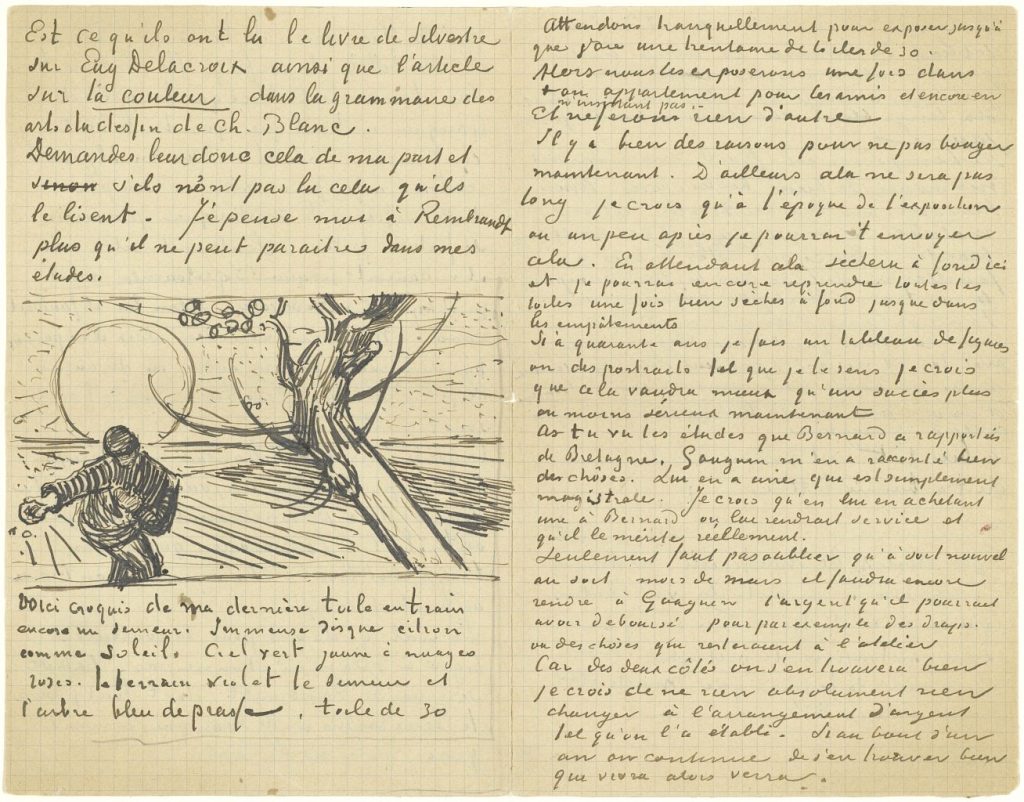 Est ce qu'ils ont lu le livre de Silvestre
sur Eug Delacroix ainsi que l'article
sur la couleur dans la grammaire des
arts du dessin de Ch. Blanc.
Demandes leur donc cela de ma part et
sinon s'ils n'ont pas lu cela qu'ils
le lisent. J'èpense moi à Rembrandt
plus qu'il ne peut paraitre dans mes
études.
Voici croquis de ma dernière toile en train
encore un semeur. Immense disque citron
comme soleil. Ciel vert jaune à nuages
roses. le terrain violet le semeur et
l'arbre bleu de prusse, toile de 30
Attendons tranquillement pour exposer jusqu'à
que j'aie une trentaine de toiles de 30.
Alors nous les exposerons une fois dans
ton appartement pour les amis et encore en
n'insistant pas.-
Et ne ferons rien d'autre
Il y a bien des raisons pour ne pas bouger
maintenant. D'ailleurs cela ne sera pas
long je crois qu'à l'époque de l'exposition
ou un peu après je pourrai t'envoyer
cela. En attendant cela sèchera à fond ici
et je pourrai encore reprendre toutes les
toiles une fois bien sèches à fond jusque dans
les empâtements
Si à quarante ans je fais un tableau de figures
ou des portraits tel que je le sens je crois
que cela vaudra mieux qu'un succès plus
ou moins sérieux maintenant
As tu vu les études que Bernard a rapportées
de Bretagne. Gauguin m'en a raconté bien
des chôses. Lui en a une que est simplement
magistrale. Je crois qu'en lui en achetant
une à Bernard on lui rendrait service et
qu'il le mérite réellement.
Seulement faut pas oublier qu'à soit nouvel
an soit mois de mars il faudra encore
rendre à Gauguin l'argent qu'il pourrait
avoir deboursé pour par exemple des draps.
ou des choses qui resteraient à l'atelier
Car des deux côtés on s'en trouvera bien
je crois de ne rien absolument rien
changer à l'arrangement d'argent
tel qu'on l'a établi. Si au bout d'un
an on continue de s'en trouver bien
que vivra alors verra.